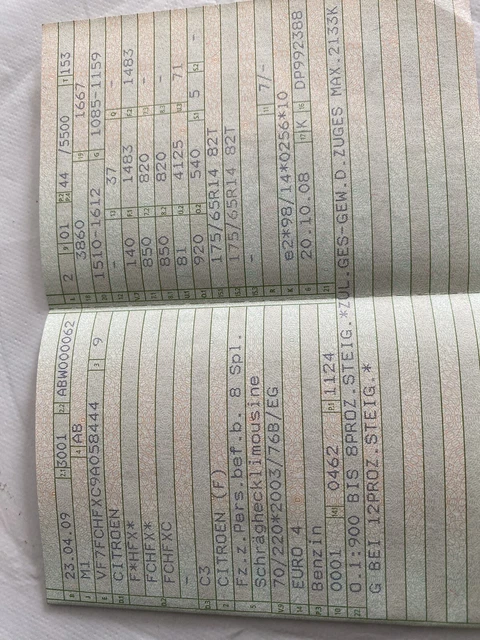 23.04.09 3001 ABW000062
M1 AB
VF7FCHFXC9A058444 9
CITROEN
F*HFX*
FCHFX*
FCHFXC
-
C3
CITROEN (F)
Fz.z.Pers.bef.b. 8 Spl.
Schräghecklimousine
70/220*2003/76B/EG
EURO 4
Benzin
0001 0462 1124
O.1:900 BIS 8PROZ.STEIG.*ZUL.GES-GEW.D.ZUGES MAX.2133K
G BEI 12PROZ.STEIG.*
2 01 44 /5500 153
3860 1667
1510-1612 1085-1159
- 37 -
140 1483 1483
850 820 -
850 820 -
81 4125 71
920 540 5 -
175/65R14 82T
175/65R14 82T
-
- 7/-
e2*98/14*0256*10
20.10.08 K DP992388